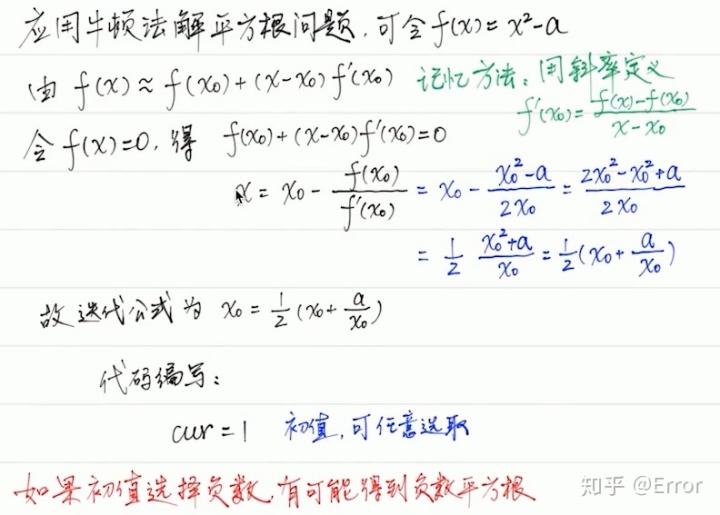 应用牛顿法解平方根问题,可令f(x)=x²-a
由 f(x)≈f(x₀)+(x-x₀)f'(x₀) 记忆方法:用斜率定义
f'(x₀)=\frac{f(x)-f(x₀)}{x-x₀}
令f(x)=0,得 f(x₀)+(x-x₀)f'(x₀)=0
x = x₀ - \frac{f(x₀)}{f'(x₀)} = x₀ - \frac{x₀²-a}{2x₀} = \frac{2x₀²-x₀²+a}{2x₀}
= \frac{1}{2} \frac{x₀²+a}{x₀} = \frac{1}{2}(x₀+\frac{a}{x₀})
故迭代公式为 x₀=\frac{1}{2}(x₀+\frac{a}{x₀})
代码编写:
cur=1 初值,可任意选取
如果初值选择负数,有可能得到负数平方根
知乎 @Error